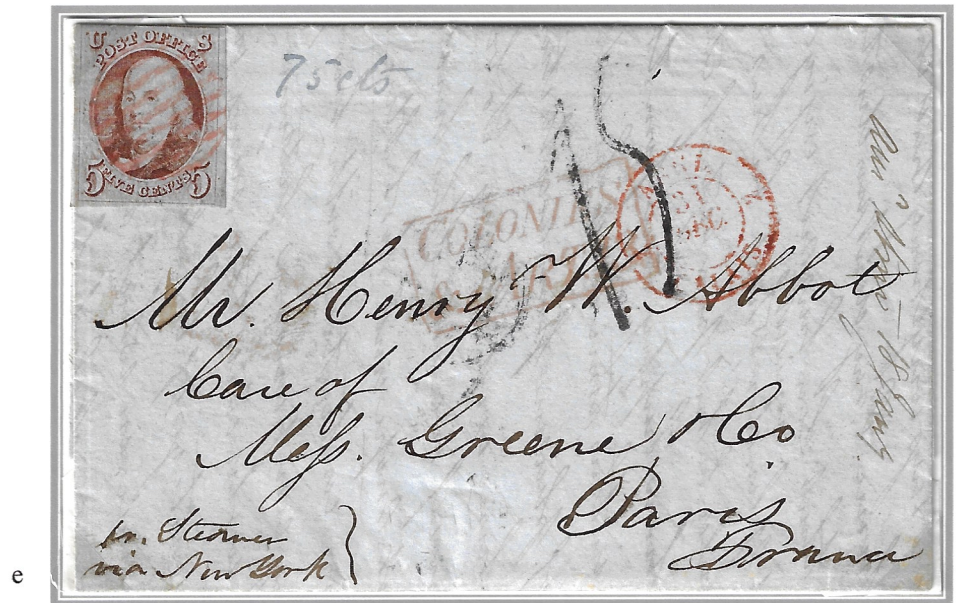 U S
POST OFFICE
5 FIVE CENTS 5
75 cts
15
COLONIES
&c. ART.
31
DEC.
Mr. Henry W. Abbot
Care of
Mess. Greene & Co
Paris
France
pr. Steamer
via New York
e